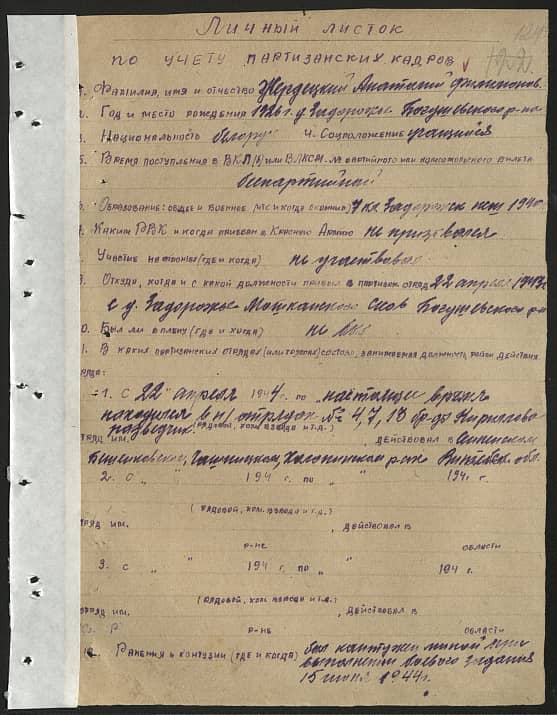 Личный листок
по учету партизанских кадров
Фамилия, имя и отчество Жердецкий Анатолий Филимонов.
Год и место рождения 1926 г. д. Задорожье Богушевского р-на
Национальность белорус 4. Соцположение учащийся
5. Время поступления в ВКП(б) или ВЛКСМ. № партийного или комсомольского билета
беспартийный
Образование: общее и военное (что и когда окончил) 7 кл. Задорожск 1940
Каким РВК и когда призван в Красную Армию не призывался
Участие на фронте (где и когда) не участвовал
Откуда, когда и с какой должности прибыл в партизан. отряд 22 апреля
с д. Задорожье Мошканского Богушевского р-н
0. Был ли в плену (где и когда) не был
1. В каких партизанских отрядах (или группах) состоял, занимаемая должность, район действия
ряда:
1. С 22 апреля 1944 г. по "настоящее время
находился в п/отрядах № 4, 7, 13 бр-ды Кириллова
разведчик (рядовой, ком. взвода и т.д.)
тряд им. действовал в Сенненском
Бешенковском, Чашникском, Холопеничском р-нах Витебск. обл.
2. С " " 194 г. по " 194 г.
(рядовой, ком. взвода и т.д.)
тряд им. , действовал в
р-не области
3. С " " 194 г. по " " 194 г.
(рядовой, ком. взвода и т.д.)
отряд им. , действовал в
р-не области
12. Ранения и контузии (где и когда) был контужен миной при
выполнении боевого задания
15 июня 1944 г.